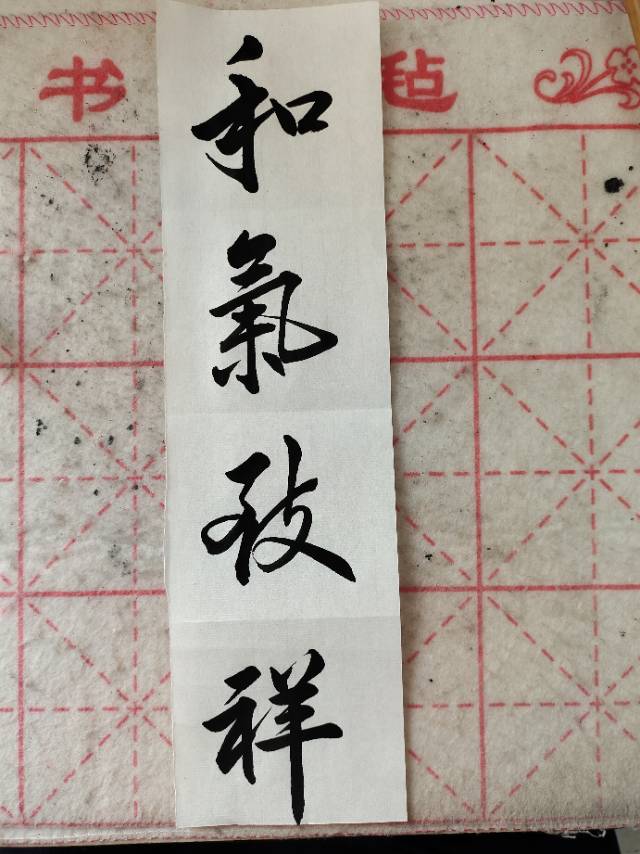 书 毡
和
氣
致
祥